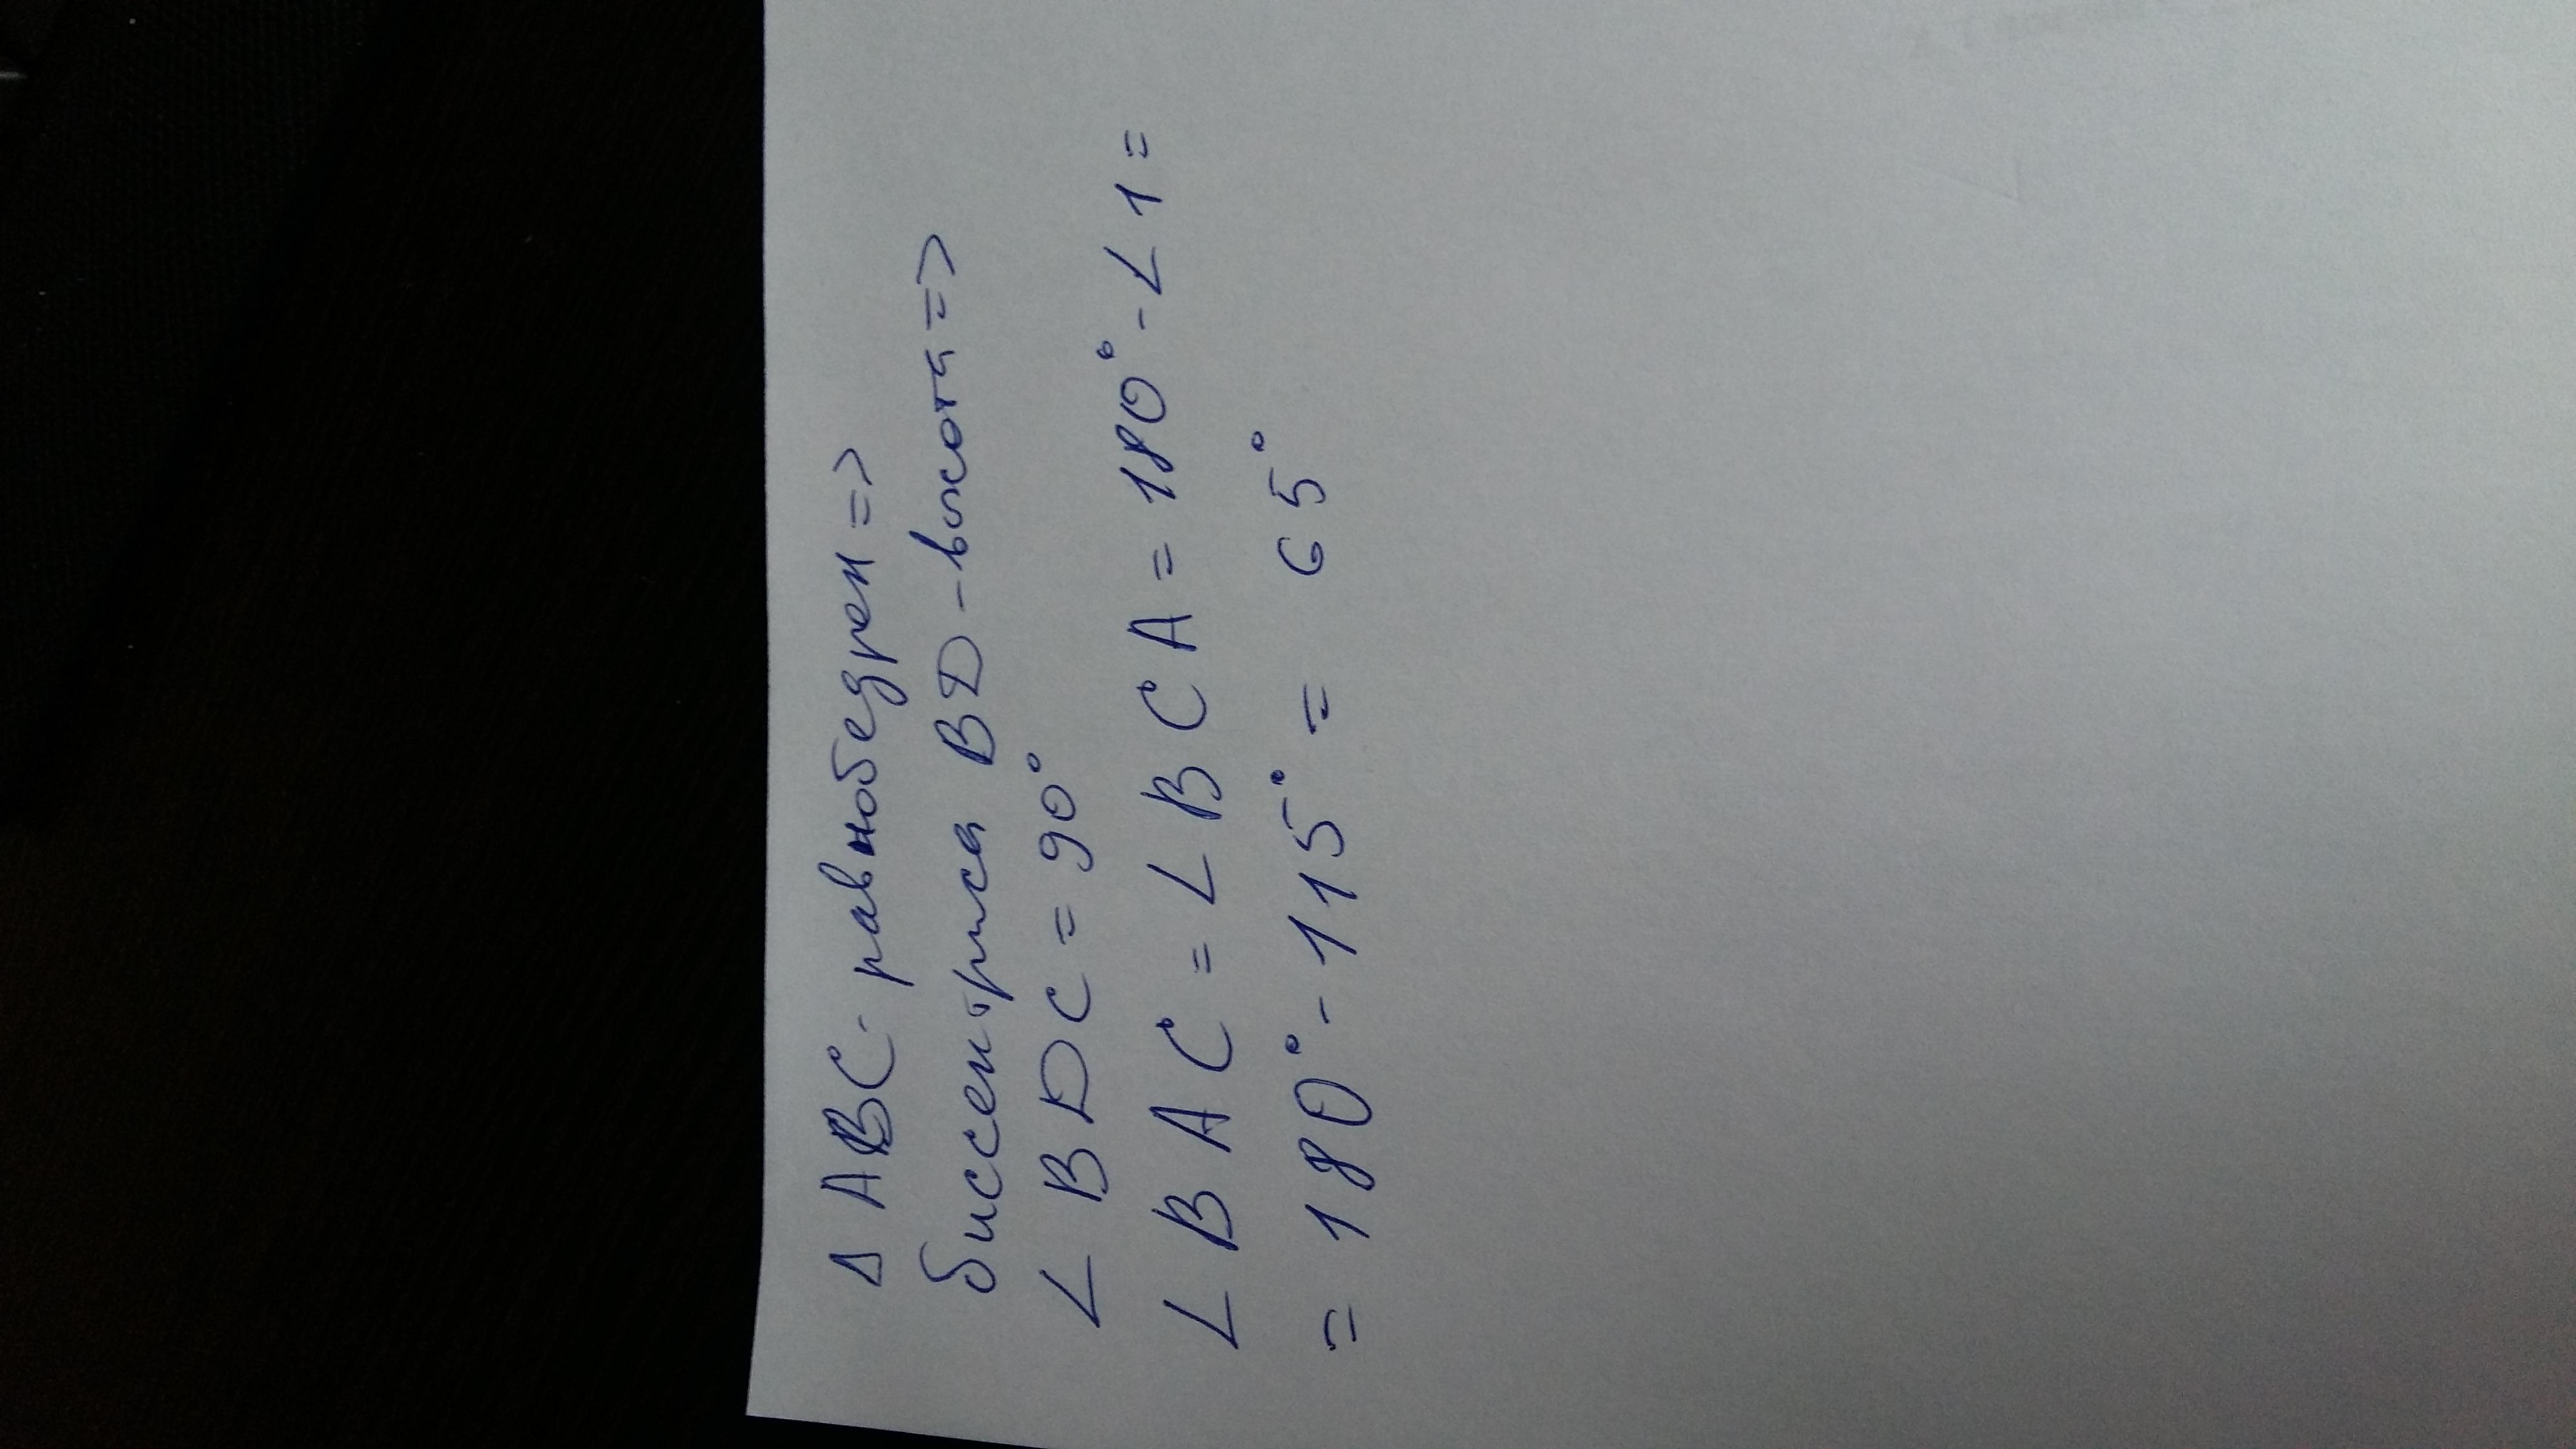 Δ ABC - равнобедрен =>
биссектриса BD - высота =>
∠ BDC = 90°
∠ BAC = ∠ BCA = 180° - ∠ 1 =
= 180° - 115° = 65°